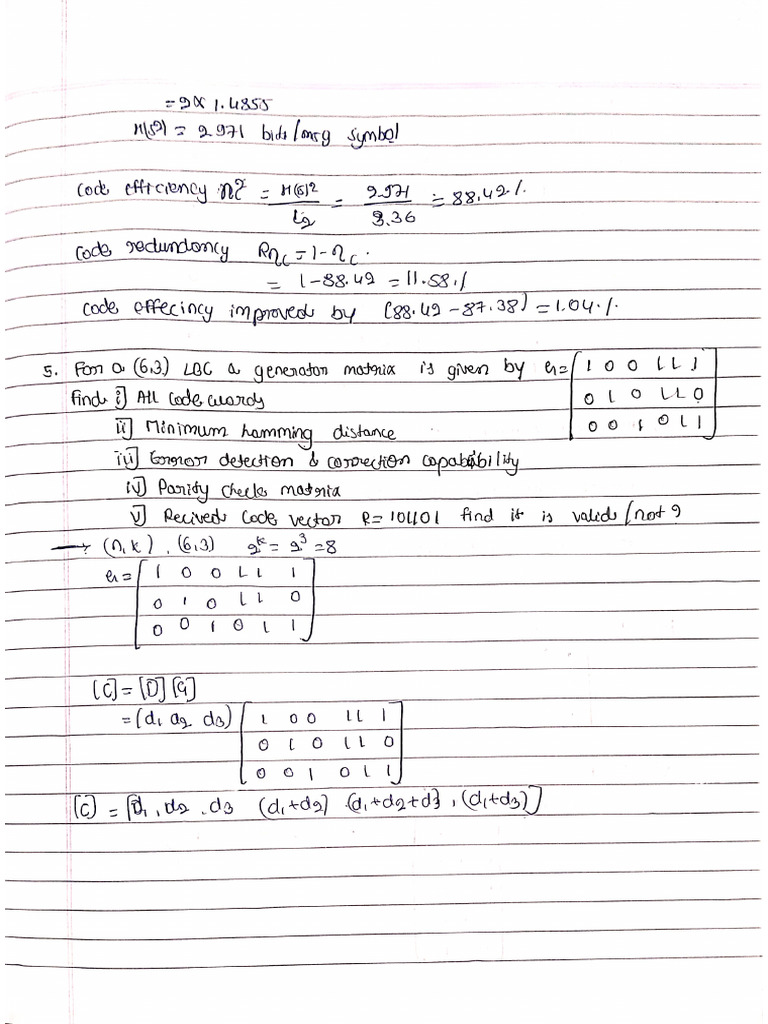 = 2 × 1.4855
H(S2) = 2.971 bids/msg symbol
Code efficiency η² = H(S)² / L2 = 2.971 / 3.36 = 88.42 %.
Code redundancy Rηc = 1 - ηc .
= 1 - 88.42 = 11.58 %
Code effecincy improved by (88.42 - 87.38) = 1.04 %.
5. For a (6,3) LBC a generator matrix is given by G = [ 1 0 0 1 1 1
find i] All Code words 0 1 0 1 1 0
ii] Minimum hamming distance 0 0 1 0 1 1 ]
iii] Error detection & correction capabability
iv] Parity check matrix
v] Recived code vector R = 101101 find it is valid / not ?
→ (n,k) , (6,3) 2^k = 2^3 = 8
G = [ 1 0 0 1 1 1
0 1 0 1 1 0
0 0 1 0 1 1 ]
[C] = [D] [G]
= (d1 d2 d3) [ 1 0 0 1 1 1
0 1 0 1 1 0
0 0 1 0 1 1 ]
[C] = [d1 , d2 , d3 (d1+d2) (d1+d2+d3 , (d1+d3)]